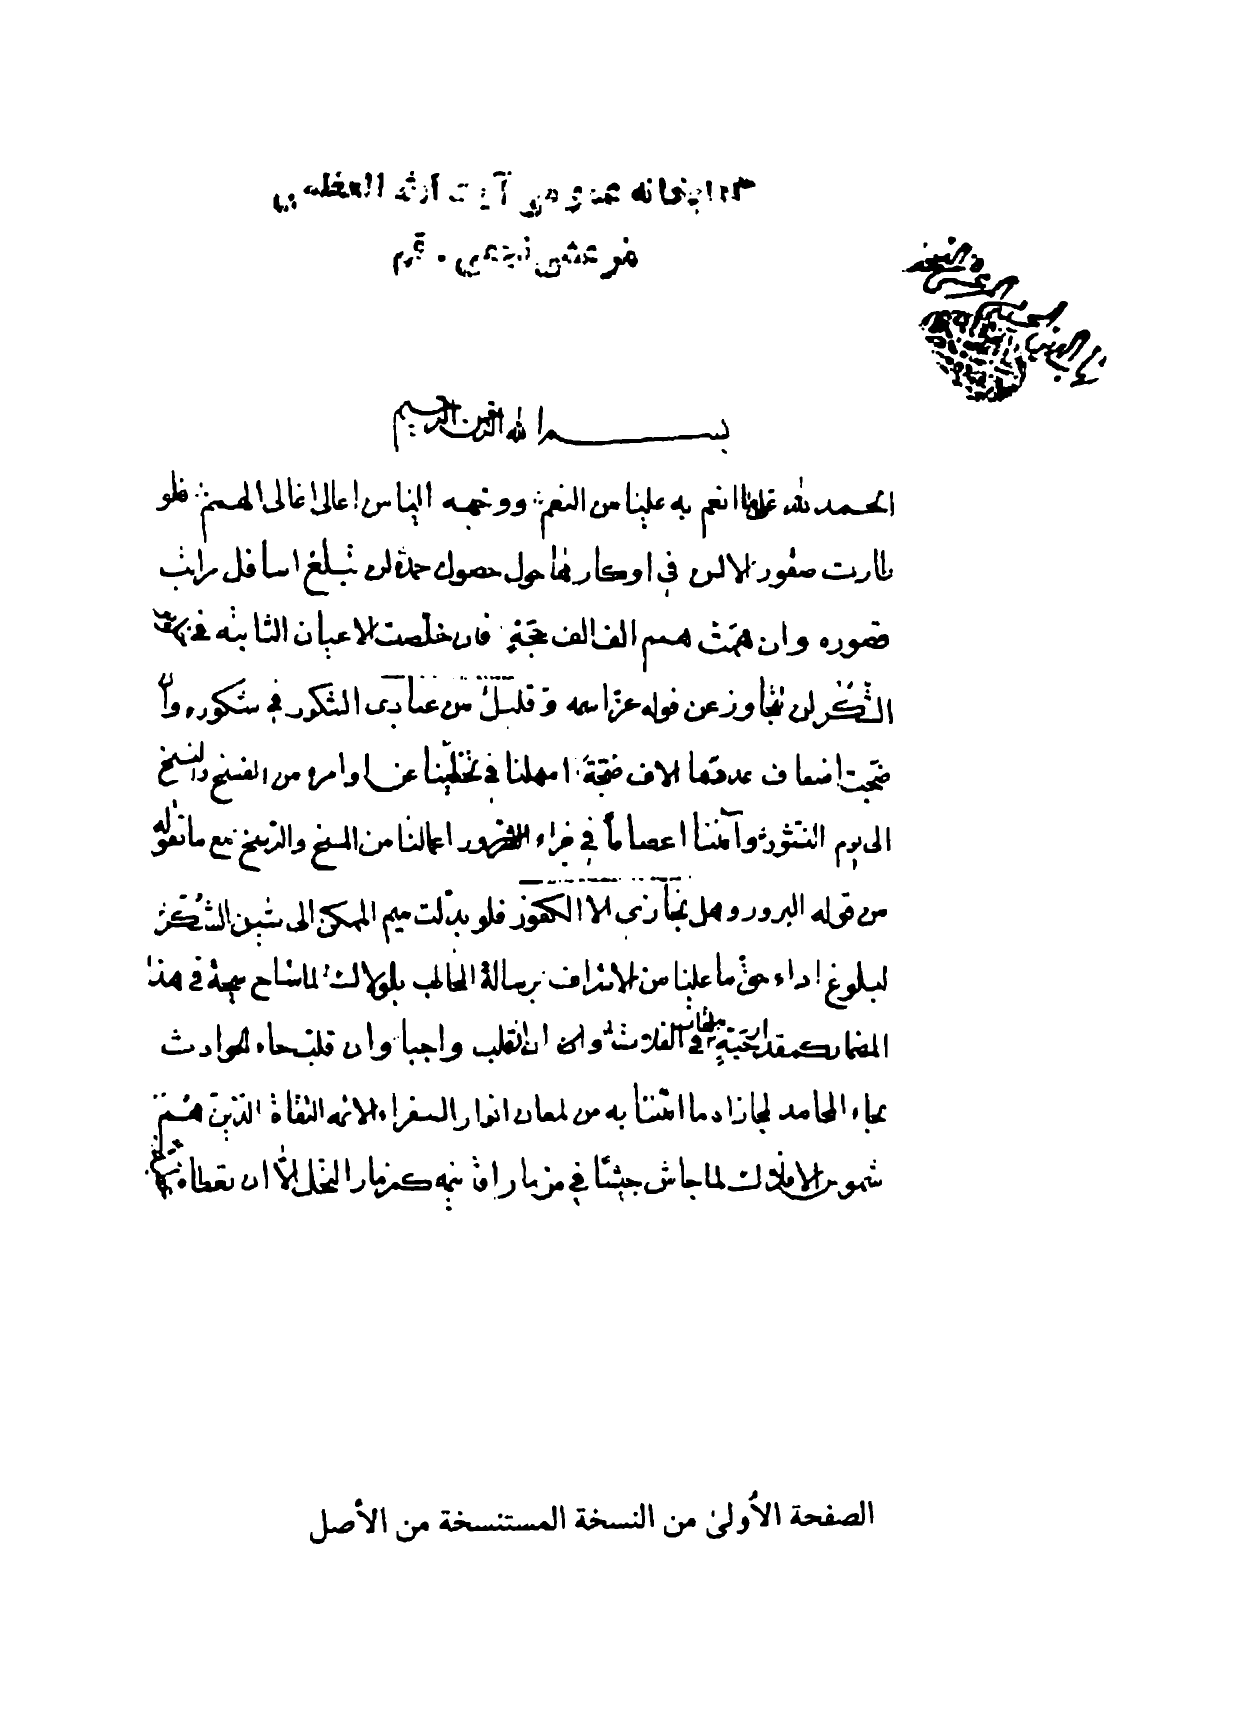 كتابخانه عمومي آيت الله العظمي
مرعشي نجفي - قم
شهاب الدين الحسيني المرعشي النجفي
بسم الله الرحمن الرحيم
الحمد لله على ما انعم به علينا من النعم ووجهه الينا من اعالى اغالى الهمم فلو
طارت صقور الالسن في اوكارها حول حصول حمده لن تبلغ اسافل مراتب
قصوره وان همّت همم الف الف حجّة فان خلصت الاعيان الثابته في
الشُكر لن تتجاوز عن قوله عزّ اسمه وقليلٌ من عبادى الشكور في شكوره وان
ضجّت اضعاف عددها الاف ضجّة امهلنا في تخطّينا عن اوامره من الفسخ والنسخ
الى يوم النشور وآمننا اعصاماً في جزاء اعمالنا من المسخ والرّسخ مع ما نقوله
من قوله البرور وهل نجازى الا الكفور فلو بدّلت ميم الممكن الى شين الشُكر
لبلوغ اداء حقّ ما علينا من الاشراف برسالة المخاطب بلولاك لما ساح سبحة في هذا
المضمار كمقدار حبّةٍ ملقاة في الفلاة وان انقلب واجبا وان قلبت حاء الحوادث
بحاء المحامد لما زاد ما امتننا به من لمعان انوار السفراء الائمه الثقاة الذين هم
شموس الافلاك لما جاش جيشنا في مزمار اقا كمزمار النحل الّا ان تعطاه
الصفحة الأولىٰ من النسخة المستنسخة من الأصل